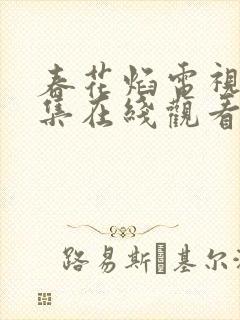 春花焰電視
集在綫觀看
路易斯�基尔